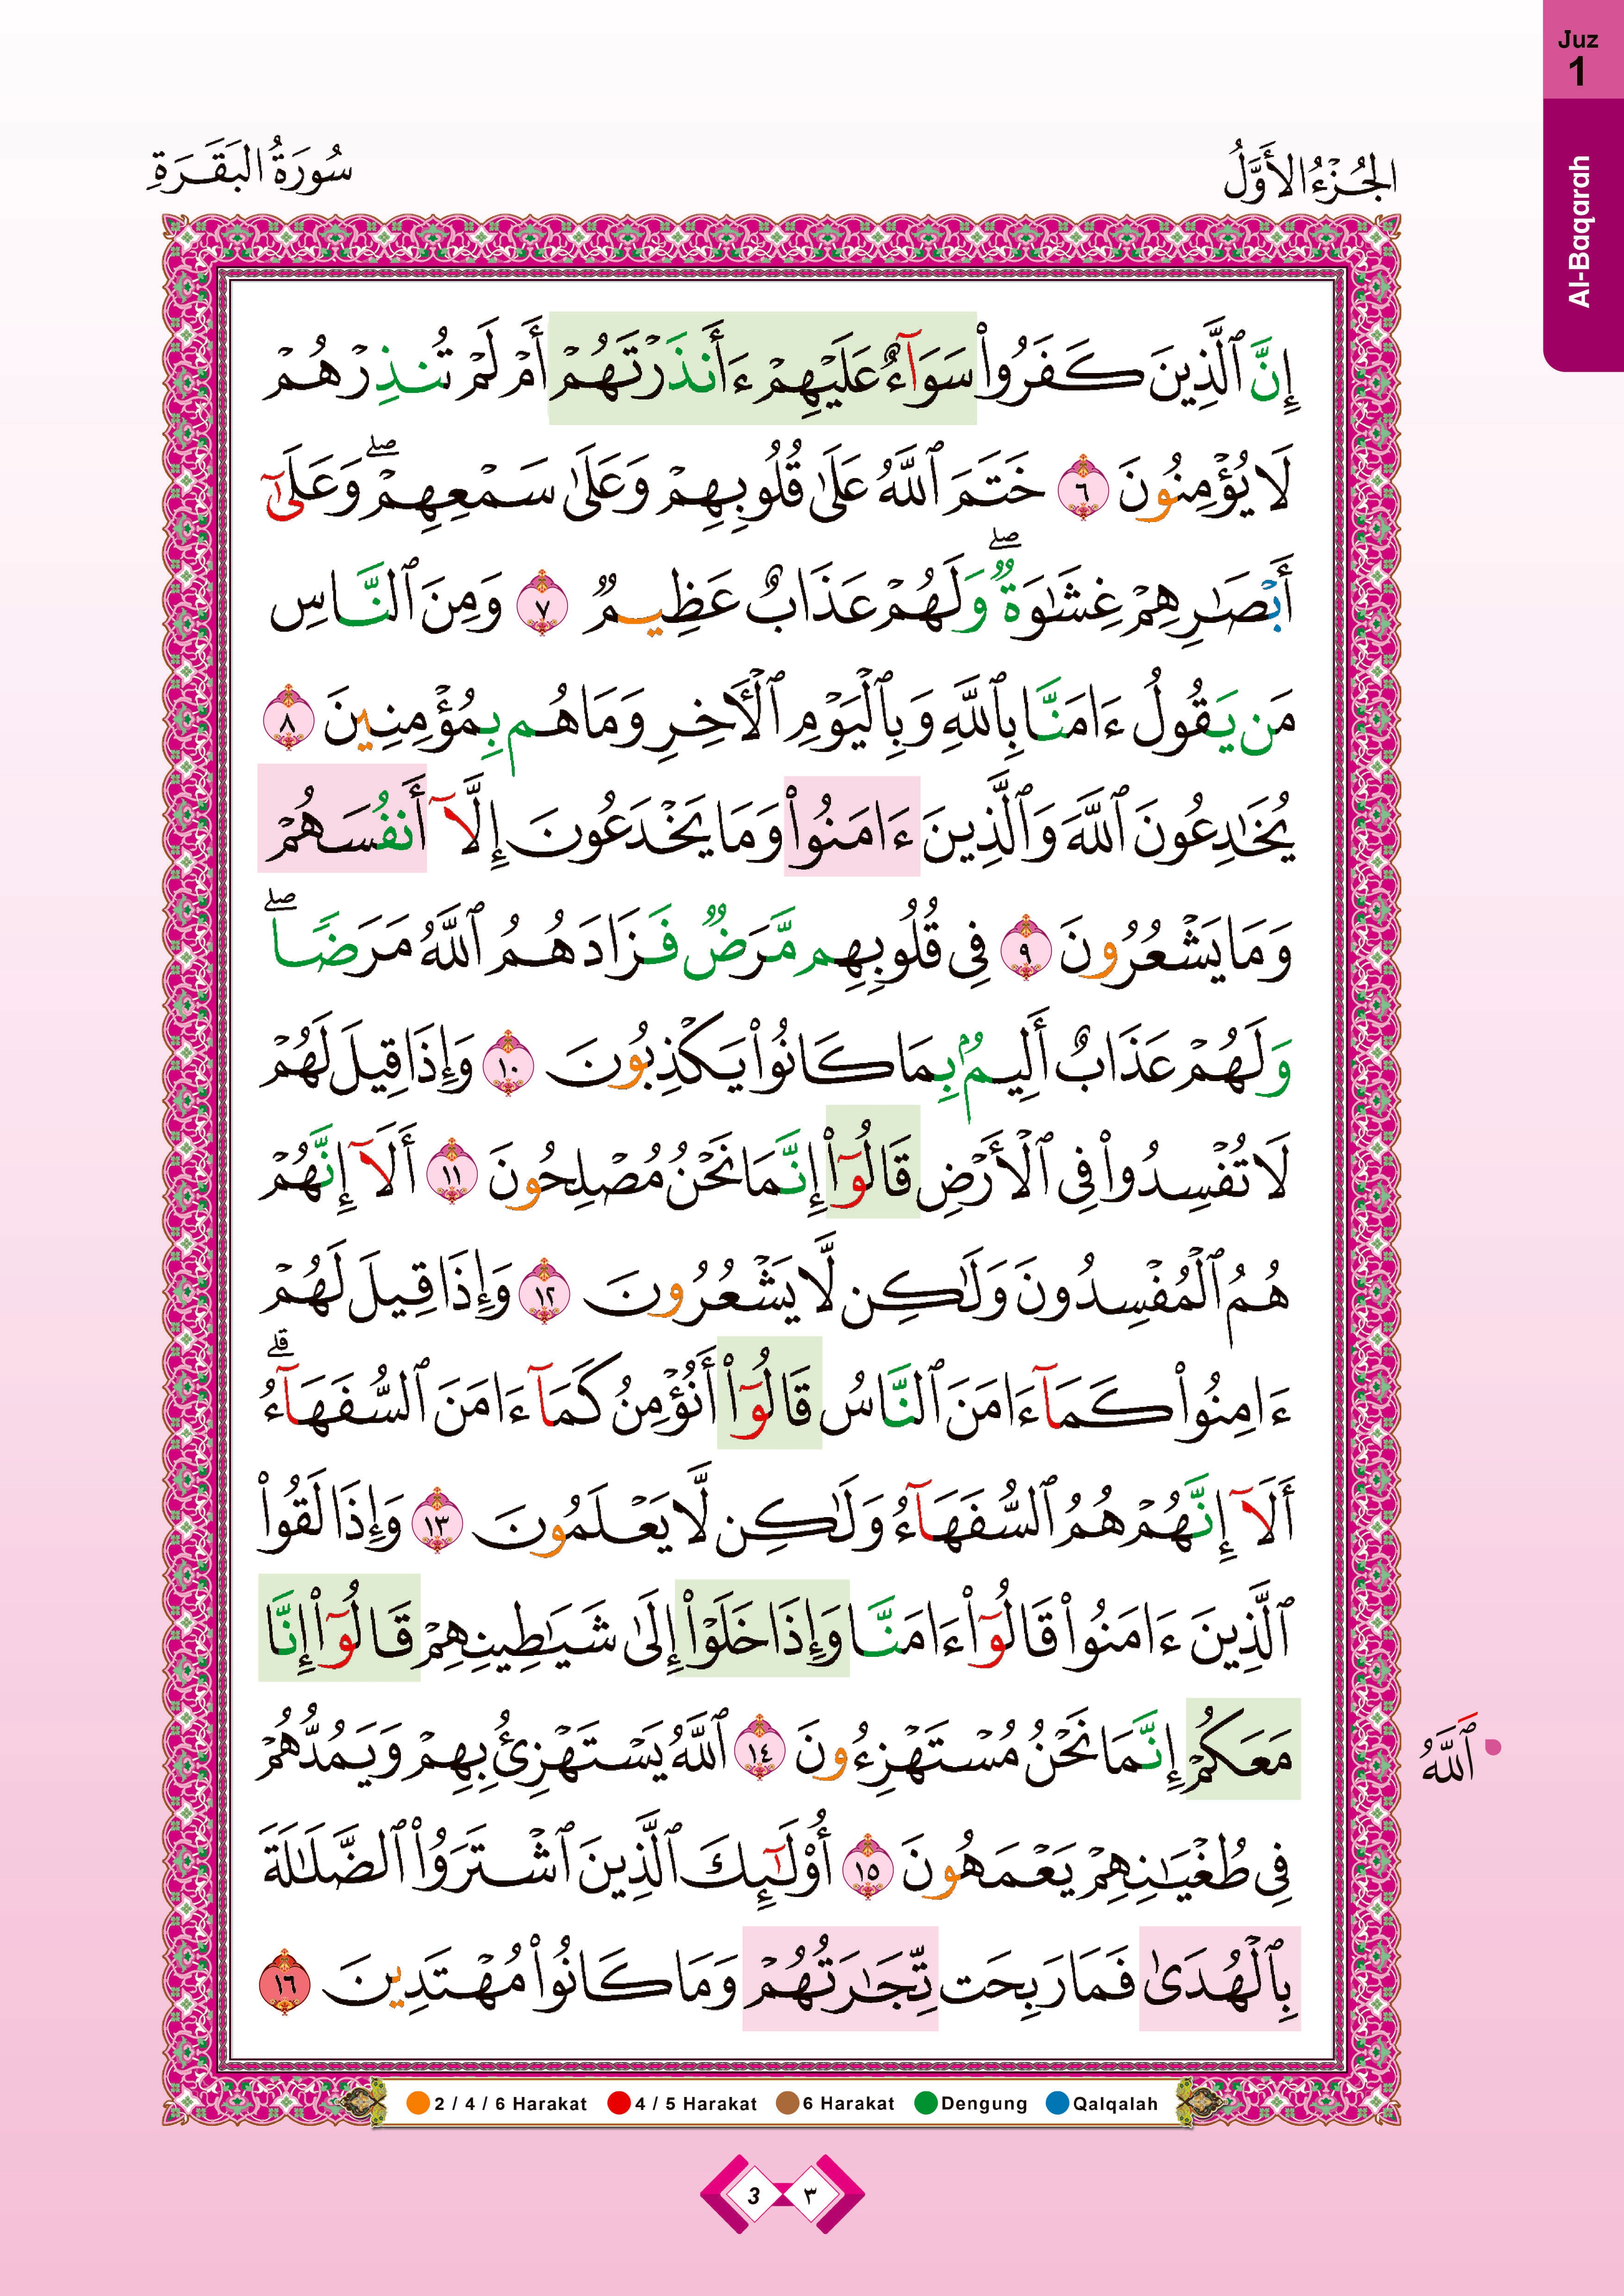 Juz
1
Al-Baqarah
الجُزْءُ الأَوَّلُ
سُورَةُ البَقَرَةِ
إِنَّ ٱلَّذِينَ كَفَرُوا۟ سَوَآءٌ عَلَيْهِمْ ءَأَنذَرْتَهُمْ أَمْ لَمْ تُنذِرْهُمْ
لَا يُؤْمِنُونَ ٦ خَتَمَ ٱللَّهُ عَلَىٰ قُلُوبِهِمْ وَعَلَىٰ سَمْعِهِمْ ۖ وَعَلَىٰٓ
أَبْصَـٰرِهِمْ غِشَـٰوَةٌ ۖ وَلَهُمْ عَذَابٌ عَظِيمٌ ٧ وَمِنَ ٱلنَّاسِ
مَن يَقُولُ ءَامَنَّا بِٱللَّهِ وَبِٱلْيَوْمِ ٱلْـَٔاخِرِ وَمَا هُم بِمُؤْمِنِينَ ٨
يُخَـٰدِعُونَ ٱللَّهَ وَٱلَّذِينَ ءَامَنُوا۟ وَمَا يَخْدَعُونَ إِلَّآ أَنفُسَهُمْ
وَمَا يَشْعُرُونَ ٩ فِى قُلُوبِهِم مَّرَضٌ فَزَادَهُمُ ٱللَّهُ مَرَضًا ۖ
وَلَهُمْ عَذَابٌ أَلِيمٌۢ بِمَا كَانُوا۟ يَكْذِبُونَ ١٠ وَإِذَا قِيلَ لَهُمْ
لَا تُفْسِدُوا۟ فِى ٱلْأَرْضِ قَالُوٓا۟ إِنَّمَا نَحْنُ مُصْلِحُونَ ١١ أَلَآ إِنَّهُمْ
هُمُ ٱلْمُفْسِدُونَ وَلَـٰكِن لَّا يَشْعُرُونَ ١٢ وَإِذَا قِيلَ لَهُمْ
ءَامِنُوا۟ كَمَآ ءَامَنَ ٱلنَّاسُ قَالُوٓا۟ أَنُؤْمِنُ كَمَآ ءَامَنَ ٱلسُّفَهَآءُ ۗ
أَلَآ إِنَّهُمْ هُمُ ٱلسُّفَهَآءُ وَلَـٰكِن لَّا يَعْلَمُونَ ١٣ وَإِذَا لَقُوا۟
ٱلَّذِينَ ءَامَنُوا۟ قَالُوٓا۟ ءَامَنَّا وَإِذَا خَلَوْا۟ إِلَىٰ شَيَـٰطِينِهِمْ قَالُوٓا۟ إِنَّا
مَعَكُمْ إِنَّمَا نَحْنُ مُسْتَهْزِءُونَ ١٤ ٱللَّهُ يَسْتَهْزِئُ بِهِمْ وَيَمُدُّهُمْ
اَللَّهُ
فِى طُغْيَـٰنِهِمْ يَعْمَهُونَ ١٥ أُو۟لَـٰٓئِكَ ٱلَّذِينَ ٱشْتَرَوُا۟ ٱلضَّلَـٰلَةَ
بِٱلْهُدَىٰ فَمَا رَبِحَت تِّجَـٰرَتُهُمْ وَمَا كَانُوا۟ مُهْتَدِينَ ١٦
2 / 4 / 6 Harakat 4 / 5 Harakat 6 Harakat Dengung Qalqalah
3 ٣